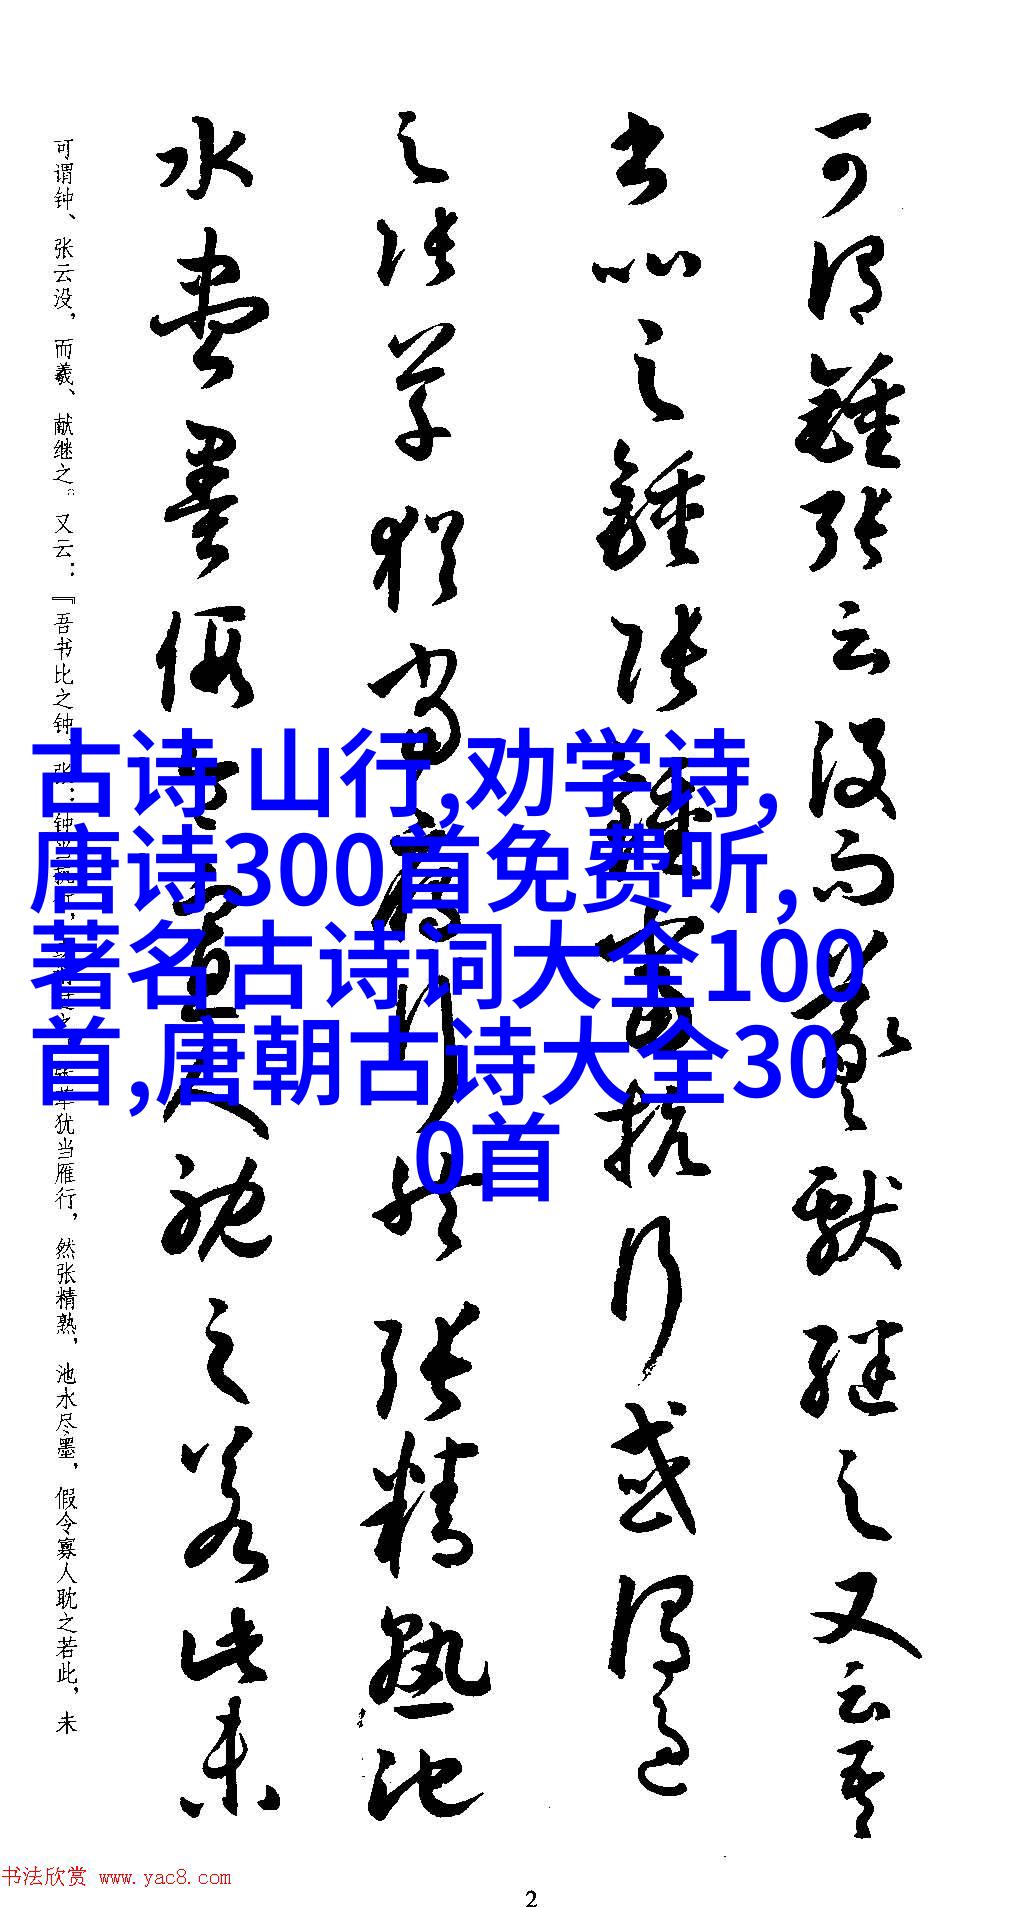 可謂鍾張云沒而羲獻繼之又云吾
書比之鍾張鍾當抗行或謂過
之張草猶當雁行然張精熟池
水盡墨假令寡人耽之若此未
可谓钟、张云没，而羲、献继之。又云：『吾书比之钟、张：钟当抗行，或谓过之，张草犹当雁行，然张精熟，池水尽墨，假令寡人耽之若此，未
古诗 山行,劝学诗,
唐诗300首免费听,
著名古诗词大全100
首,唐朝古诗大全30
0首
书法欣赏 www.yac8.com
2